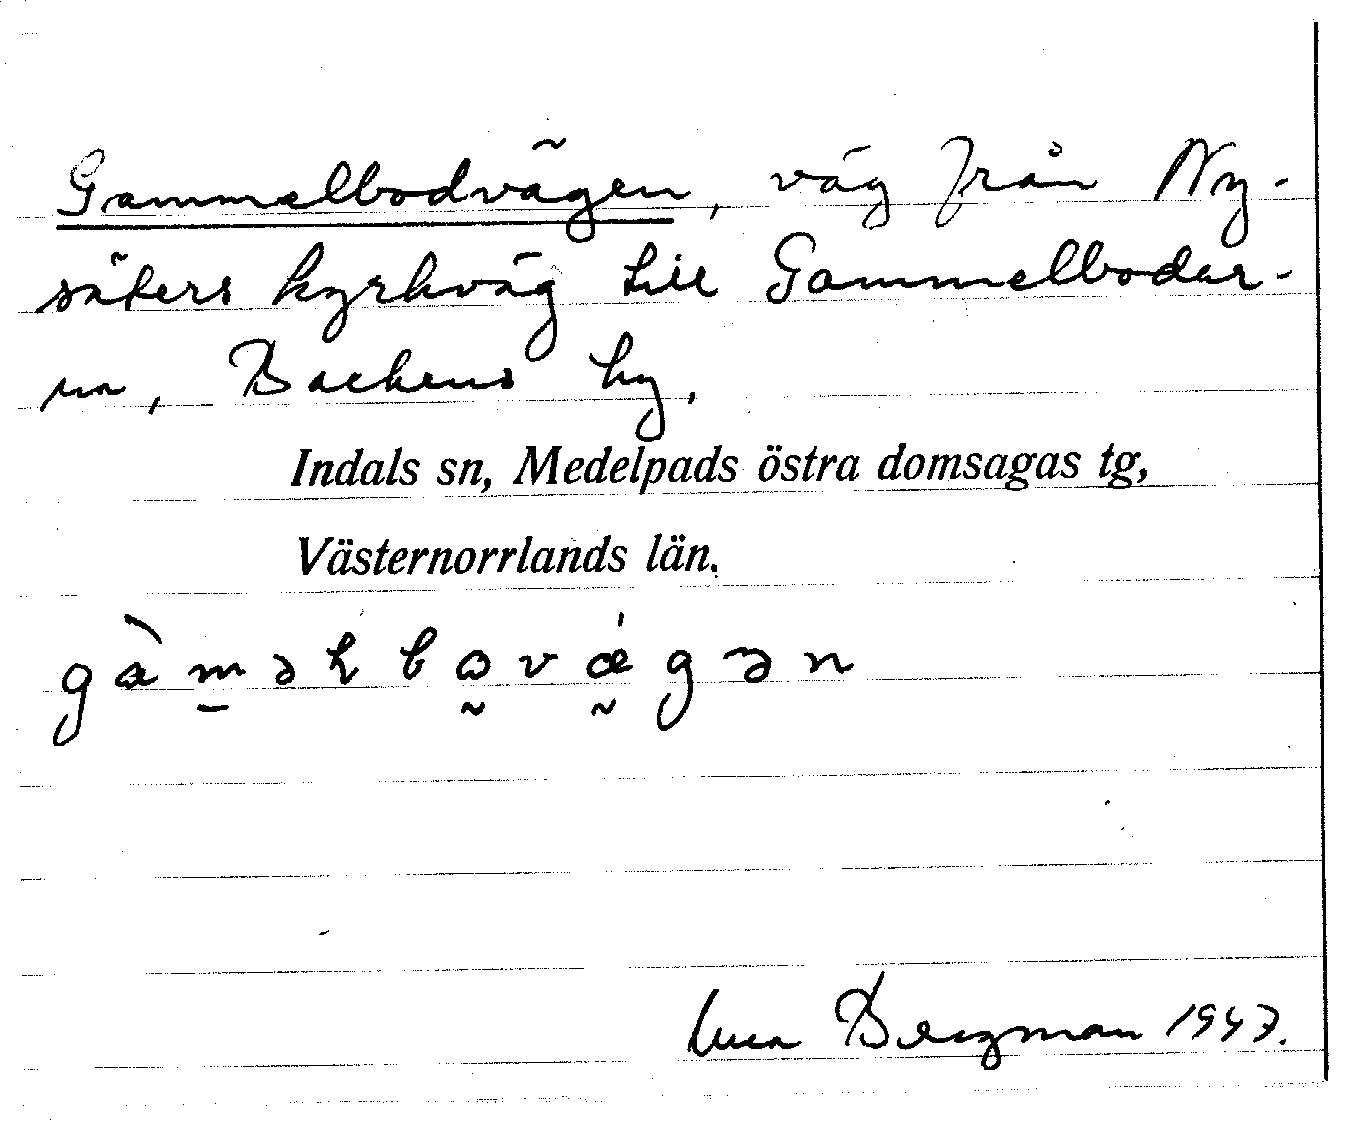 Gammelbodvägen, väg från Ny-
säters kyrkväg till Gammelbodar-
na, Backens by.
Indals sn, Medelpads östra domsagas tg,
Västernorrlands län.
Bergman 1943.